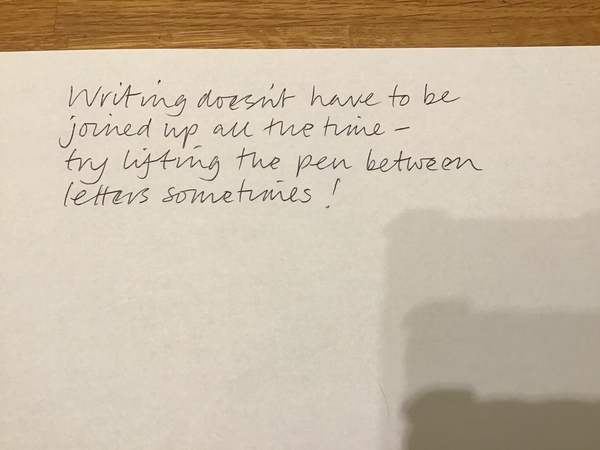 Writing doesn't have to be
joined up all the time –
try lifting the pen between
letters sometimes!